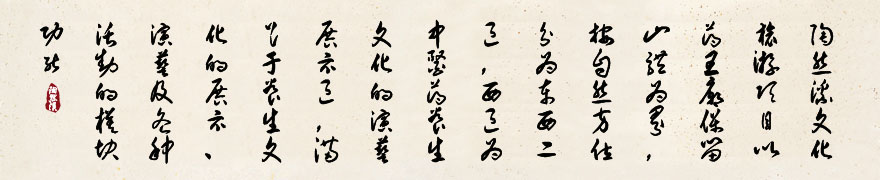 陶然文化
旅游项目以
药王保留
山体为界，
按自然方位
分为东西二
区，西区为
中医药养生
文化的演艺
展示区，满
足于养生文
化的展示、
演艺及各种
活动的模块
功能